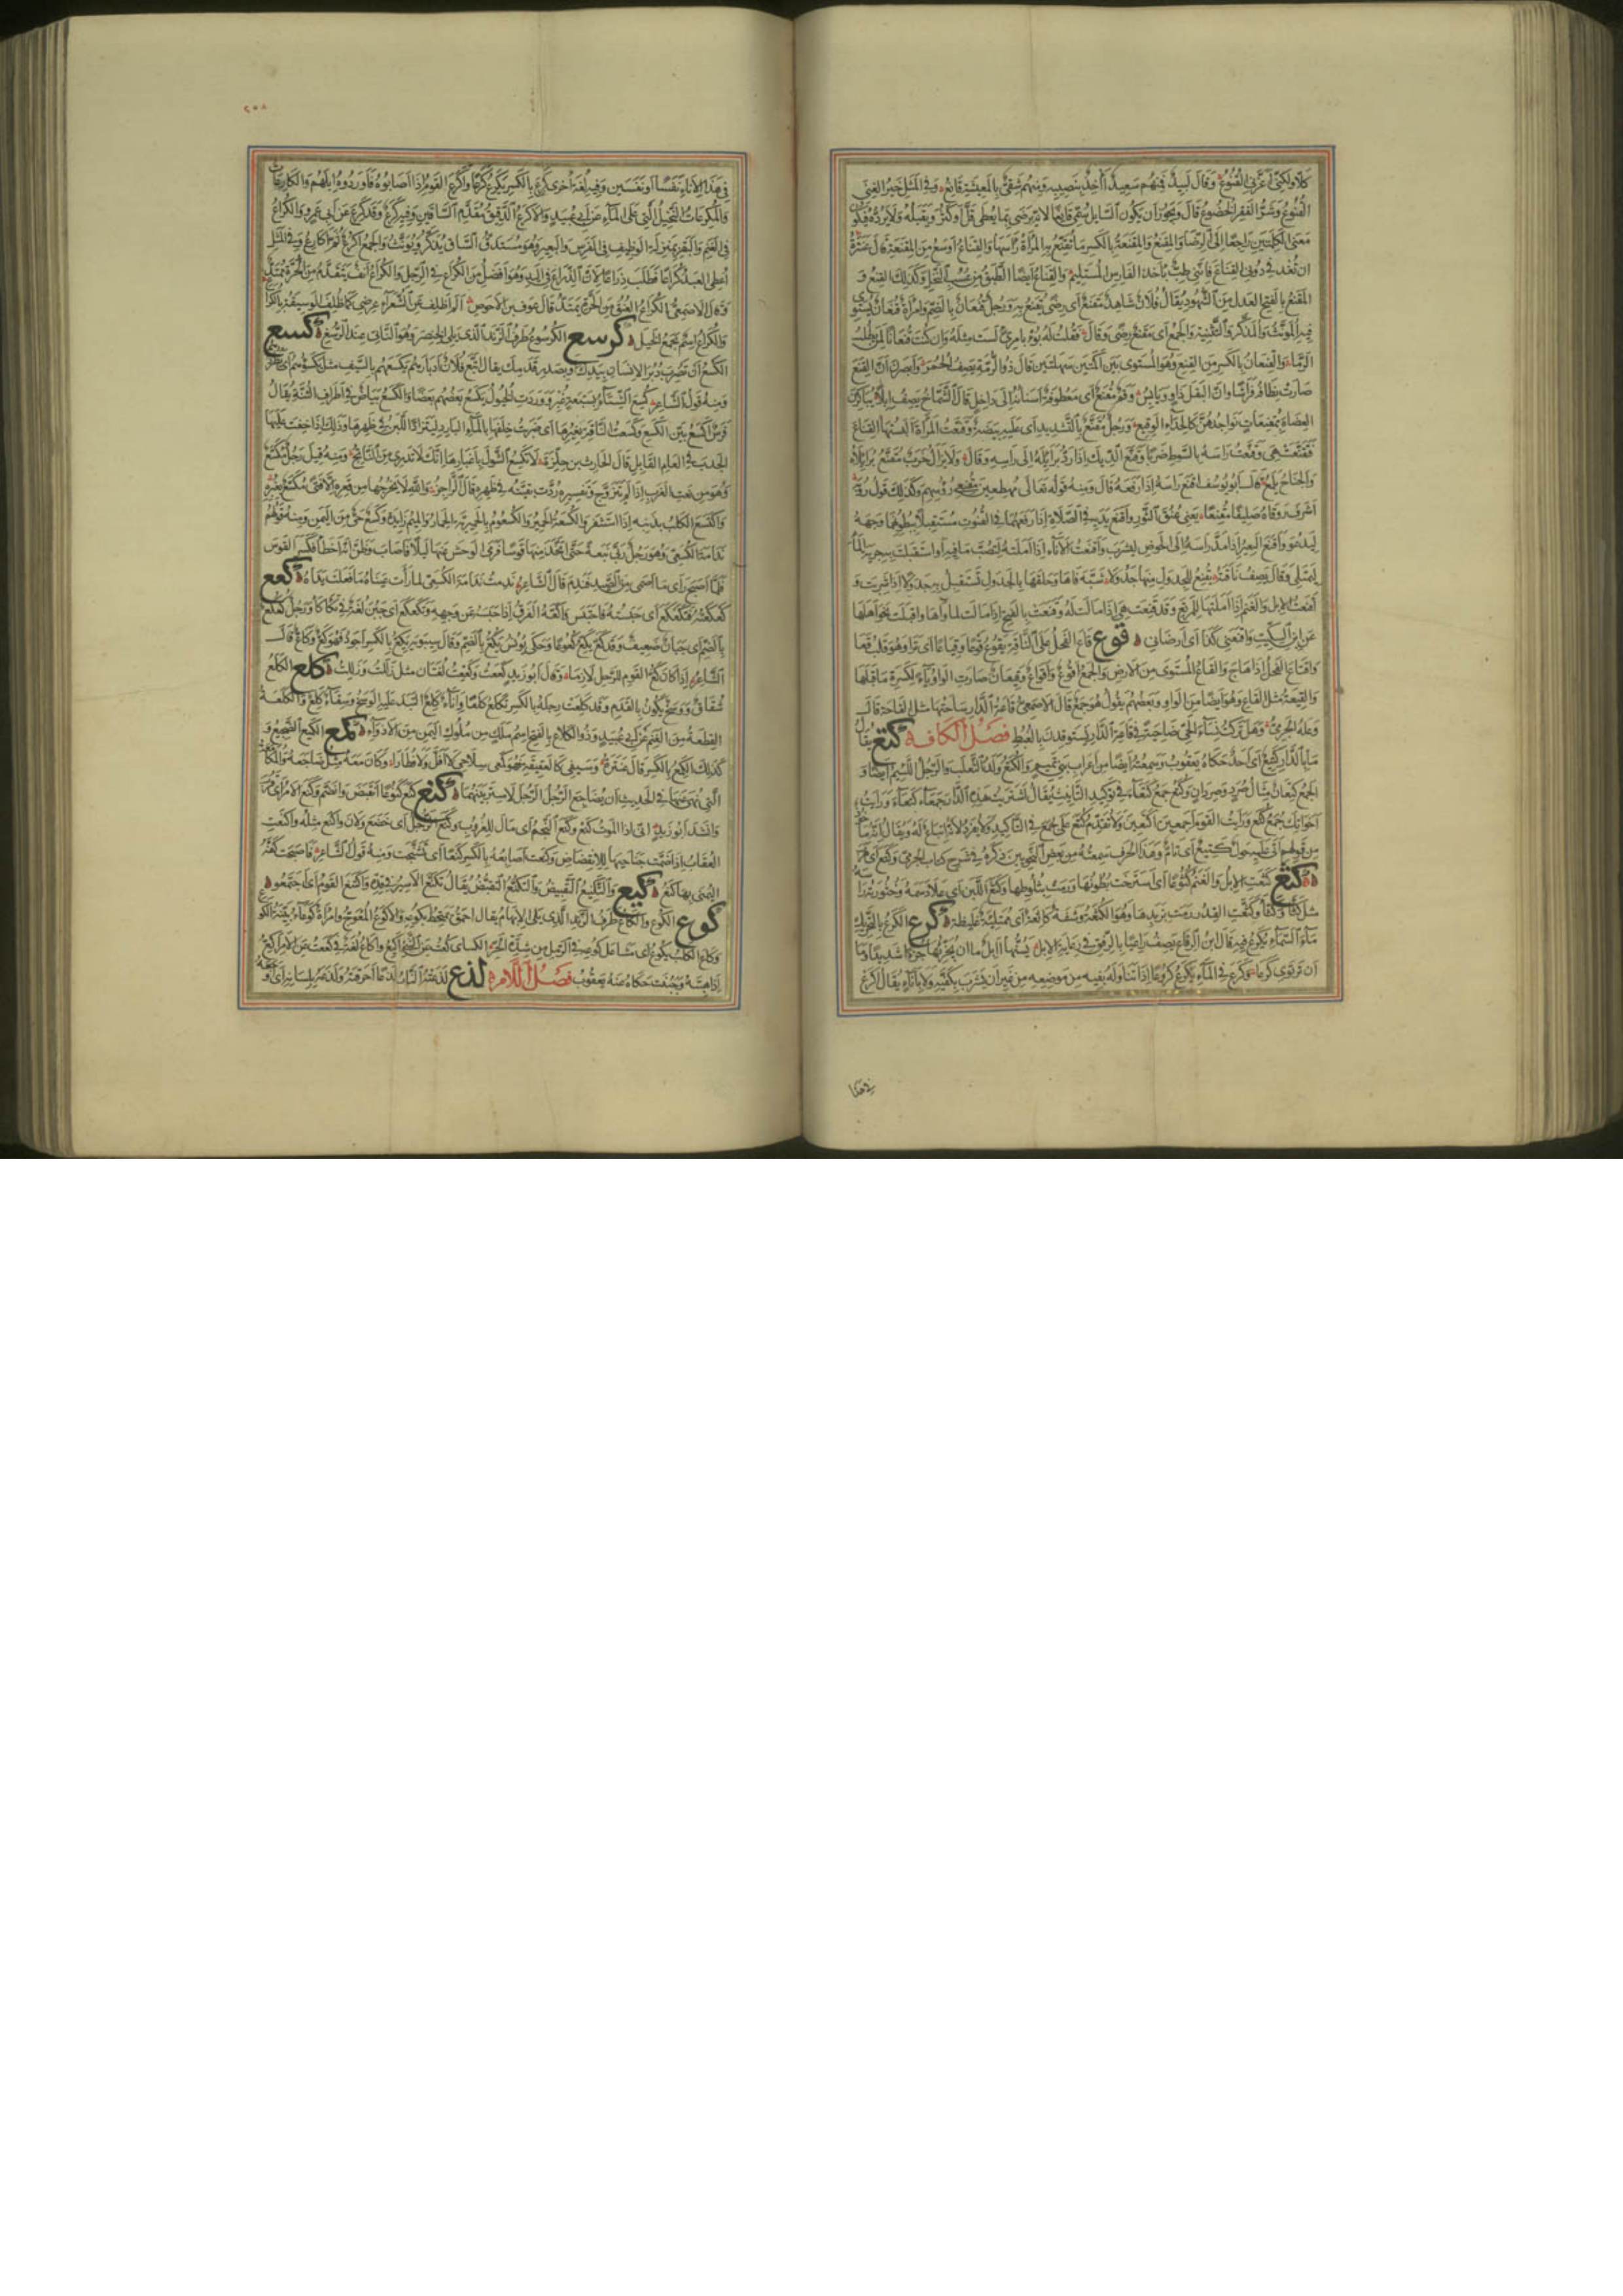 كلا ولكني اعزني القنوع وقال لبيد فمنهم سعيد آخذ بنصيبه ومنهم شقي بالمعيشة قانع وفي المثل خير الغنى
القنوع وشر الفقر الخضوع قال ويجوز ان يكون السايل سمي قانعا لانه يرضى بما يعطى قل او كثر ويقبله ولا يرده فيكون
معنى الكلمتين راجعا الى الرضا والمقنع والمقنعة بالكسر ما تقنع به المراة راسها والقناع اوسع من المقنعة قال عنترة
ان تغدفي دوني القناع فانني طب باخذ الفارس المستليم والقناع ايضا الطبق من عسب النخل وكذلك القنع و
المقنع بالفتح العدل من الشهود يقال فلان شاهد مقنع اي رضى يقنع به ورجل قنعان بالضم وامراة قنعان يستوي
فيه المونث والمذكر والتثنية والجمع اي مقنع رضى وقال فقلت له بؤ بامرئ لست مثله وان كنت قنعانا لمن يطلب
الدما والقنعان بالكسر من القنع وهو المستوى بين اكمتين سهلتين قال ذو الرمة يصف الحمر وابصرن ان القنع
صارت نطافه فراشا وان البقل ذاو ويابس وفم مقنع اي معطوفة اسنانه الى داخل قال الشماخ يصف ابلا يباكرن
العضاه بمقنعات نواجذهن كالحداء الوقيع ورجل مقنع بالتشديد اي عليه بيضة وقنعت المراة البستها القناع
فتقنعت هي وقنعت راسه بالسوط ضربا وقنع الديك اذا رد برائله الى راسه وقال ولا يزال خرب مقنع برائلاه
والجناح يلمع قال ابو يوسف اقنع راسه اذا رفعه قال ومنه قوله تعالى مهطعين مقنعي رؤسهم وكذلك قول رؤبة
اشرف روقاه صليفا مقنعا يعني عنق الثور واقنع يديه في الصلاة اذا رفعهما في القنوت مستقبلا ببطونهما وجهه
ليدعو واقنع البعير اذا مد راسه الى الحوض ليشرب واقنعت الاناء اذا املته لتصب ما فيه او استقبلت به جرية الماء
ليمتلي وقال يصف ناقته تقنع للجدول منها جدولا شبه فاها وحلقها بالجدول تستقبل به جدولا اذا شربت و
اقنعت الابل والغنم اذا املتها للمرتع وقد قنعت هي اذا مالت له وقنعت بالفتح اذا مالت لماواها واقبلت نحو اهلها
عن ابن السكيت واقنعني كذا اي ارضاني قوع قاع الفحل على الناقة يقوع قوعا وقياعا اي نزا وهو قلب قعا
واقتاع الفحل اذا هاج والقاع المستوى من الارض والجمع اقوع واقواع وقيعان صارت الواو ياء لكسرة ما قبلها
والقيعة مثل القاع وهو ايضا من الواو وبعضهم يقول هو جمع قال الاصمعي قاعة الدار ساحتها مثل القاحة قال
وعلة الجرمي وهل تركت نساء الحي ضاحية في قاعة الدار يستوقدن بالغبط فصل الكاف كتع يقال
ما بالدار كتيع اي احد حكاه يعقوب وسمعته ايضا من اعراب بني تميم والكتع ولد الثعلب والرجل اللئيم ايضا و
الجمع كتعان مثال صرد وصردان وكتع جمع كتعاء في توكيد التانيث يقال اشتريت هذه الدار جمعاء كتعاء ورايت
اخواتك جمع كتع ورايت القوم اجمعين اكتعين ولا تقدم كتع على جمع في التاكيد ولا يفرد لانه اتباع له ويقال انه ماخوذ
من قولهم اتى عليه حول كتيع اي تام وهذا الحرف سمعته من بعض النحويين ذكره في شرح كتاب الجرمي وكتع اي هرب
كثع كثعت الابل والغنم كثوعا اي استرخت بطونها ورمت بثلوطها وكثع اللبن اي علا دسمه وخثورته راسه
مثل كثا وكثا وكثعت القدر رمت بزبدها وهو الكثعة وشفة كاثعة اي ممتلية غليظة كرع الكرع بالتحريك
ماء السماء يكرع فيه قال ابن الرقاع يصف راعيا بالرفق في رعاية الابل يسنها آبل ما ان يجزئها جزءا شديدا وما
ان ترتوي كرعا وكرع في الماء يكرع كروعا اذا تناوله بفيه من موضعه من غير ان يشرب بكفيه ولا باناء يقال اكرع
في هذا
٢٥٨
في هذا الاناء نفسا او نفسين وفيه لغة اخرى كرع بالكسر يكرع كرعا واكرع القوم اذا اصابوه فاوردوه ابلهم والكارعات
والمكرعات النخيل التي على الماء عن ابي عبيد والاكرع الدقيق مقدم الساقين وفيه كرع وقد كرع عن ابي عمرو والكراع
في الغنم والبقر بمنزلة الوظيف في الفرس والبعير وهو مستدق الساق يذكر ويونث والجمع اكرع ثم اكارع وفي المثل
اعطي العبد كراعا فطلب ذراعا لان الذراع في اليد وهو افضل من الكراع في الرجل والكراع انف يتقدم من الحرة ممتد
وقال الاصمعي الكراع العنق من الحرة يمتد قال عوف بن الاحوص الم اظلف عن الشعراء عرضي كما ظلف الوسيقة بالكراع
والكراع اسم يجمع الخيل كرسع الكرسوع طرف الزند الذي يلي الخنصر وهو الناتي عند الرسغ كسع
الكسع ان تضرب دبر الانسان بيدك او بصدر قدمك يقال اتبع فلان ادبارهم يكسعهم بالسيف مثل يكسؤهم اي يطردهم
ومنه قول الشاعر كسع الشتاء بسبعة غبر ووردت الخيول يكسع بعضهم بعضا والكسع بياض في اطراف الثنة يقال
فرس اكسع بين الكسع وكسعت الناقة بغبرها اي ضربت خلفها بالماء البارد ليتراد اللبن في ظهرها وذلك اذا خفت عليها
الجدب في العام القابل قال الحارث بن حلزة لا تكسع الشول باغبارها انك لا تدري من الناتج ومنه قيل رجل مكسع
وهو من نعت العزب اذا لم يتزوج وتفسيره ردت بقيته في ظهره قال الراجز والله لا يخرجها من قعره الا فتى مكسع بغبره
واكتسع الكلب بذنبه اذا استثفر والكسعة الحمير والكسعوم بالحميرية الحمار والميم زايدة وكسع حي من اليمن ومنه قولهم
ندامة الكسعي وهو رجل ربى نبعة حتى اتخذ منها قوسا فرمى الوحش عنها ليلا فاصاب وظن انه اخطا فكسر القوس
فلما اصبح راى ما اصمى من الصيد فندم قال الشاعر ندمت ندامة الكسعي لما رات عيناه ما فعلت يداه كعع
كعكعته فتكعكع اي حبسته فاحتبس واكعه الفرق اذا حبسه عن وجهه وتكعكع اي جبن لغة في تكاكا ورجل كعكع
بالضم اي جبان ضعيف وقد كع يكع كعوعا وحكى يونس يكع بالضم وقال سيبويه يكع بالكسر اجود فهو كع وكاع قال
الشاعر اذا كان كع القوم للرحل لازما وقال ابو زيد كععت وكععت لغتان مثل زللت وزللت كلع الكلع
شقاق ووسخ يكون بالقدم وقد كلعت رجله بالكسر تكلع كلعا واناء كلع التبد عليه الوسخ وسقاء كلع والكلعة
القطعة من الغنم عن ابي عبيد وذو الكلاع بالفتح اسم ملك من ملوك اليمن من الاذواء كمع الكميع الضجيع و
كذلك الكمع بالكسر قال عنترة وسيفي كالعقيقة فهو كمعي سلاحي لا افل ولا فطارا وكامعه مثل ضاجعه والمكامعة
التي نهي عنها في الحديث ان يضاجع الرجل الرجل لا ستر بينهما كنع كنع كنوعا انقبض وانضم وكنع الامر اي قرب
وانشد ابو زيد اني اذا الموت كنع وكنع النجم اي مال للغروب وكنع الرجل اي خضع ولان واكنع مثله واكنعت
العقاب اذا ضمت جناحيها للانقضاض وكنعت اصابعه بالكسر كنعا اي تشنجت ومنه قول الشاعر فاصبحت كفه
اليمنى بها كنع كنع والتكنيع التقبيض والتكنع التقبض يقال تكنع الاسير في قده واكتنع القوم اي اجتمعوا
كوع الكوع والكاع طرف الزند الذي يلي الابهام يقال احمق يمتخط بكوعه والاكوع المعوج وامراة كوعاء بينة الكوع
وكاع الكلب يكوع اي مشا على كوعه في الرمل من شدة الحر الكساى كعت عن الشيء اكيع واكاع لغة في كععت عن الامر اكع
اذا هبته وجبنت حكاه عنه يعقوب فصل اللام لذع لذعته النار لذعا احرقته ولذعه بلسانه اي اوجعه